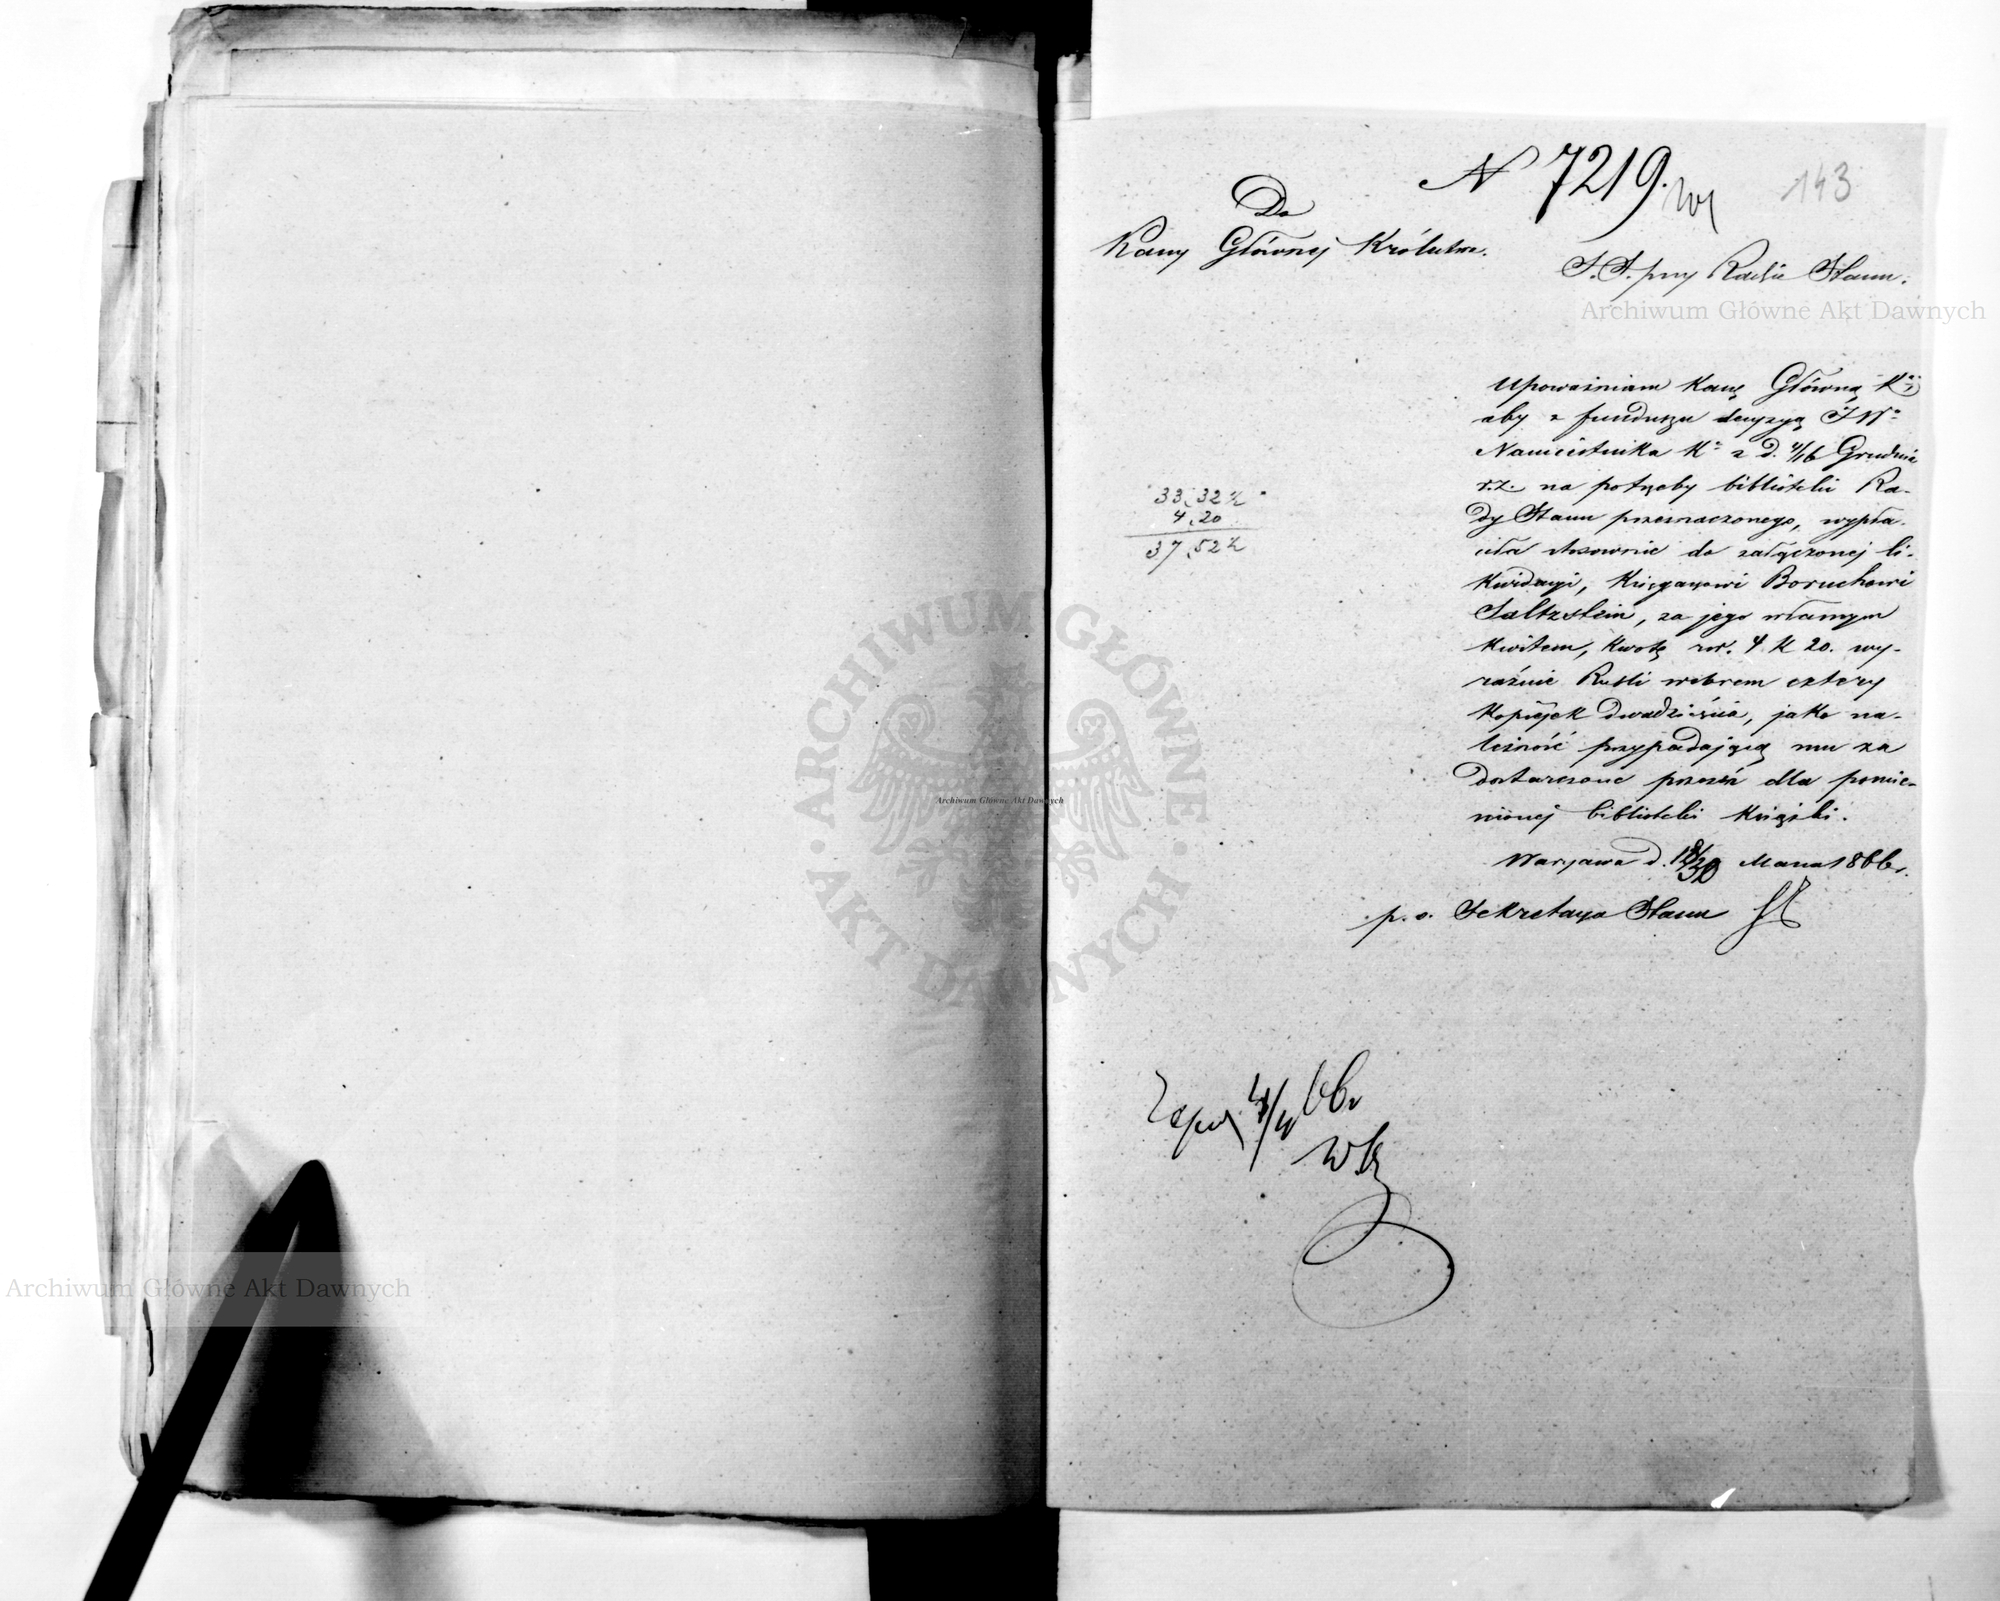 N 7219.
143
Do
Kassy Głównej Królestwa.
S. S. przy Radzie Stanu.
Archiwum Główne Akt Dawnych
Upoważniam Kassę Główną K:
aby z funduszu decyzyą JW:
Namiestnika K: z d. 4/16 Grudnia
r.z. na potrzeby biblioteki Ra-
dy Stanu przeznaczonego, wypła-
ciła stosownie do załączonej li-
kwidacyi, Księgarzowi Boruchowi
Saltzstein, za jego własnym
kwitem, kwotę rsr. 4 k 20. wy-
raźnie Rubli srebrem cztery
kopiejek dwadzieścia, jako na-
leżność przypadającą mu za
dostarczone przezeń dla pomie-
nionej biblioteki książki.
33, 32 ½
4, 20
37, 52 ½
Warszawa d. 18/30 Marca 1866 r.
p. o. Sekretarza Stanu
66 r
ARCHIWUM GŁÓWNE · AKT DAWNYCH ·
Archiwum Główne Akt Dawnych
Archiwum Główne Akt Dawnych